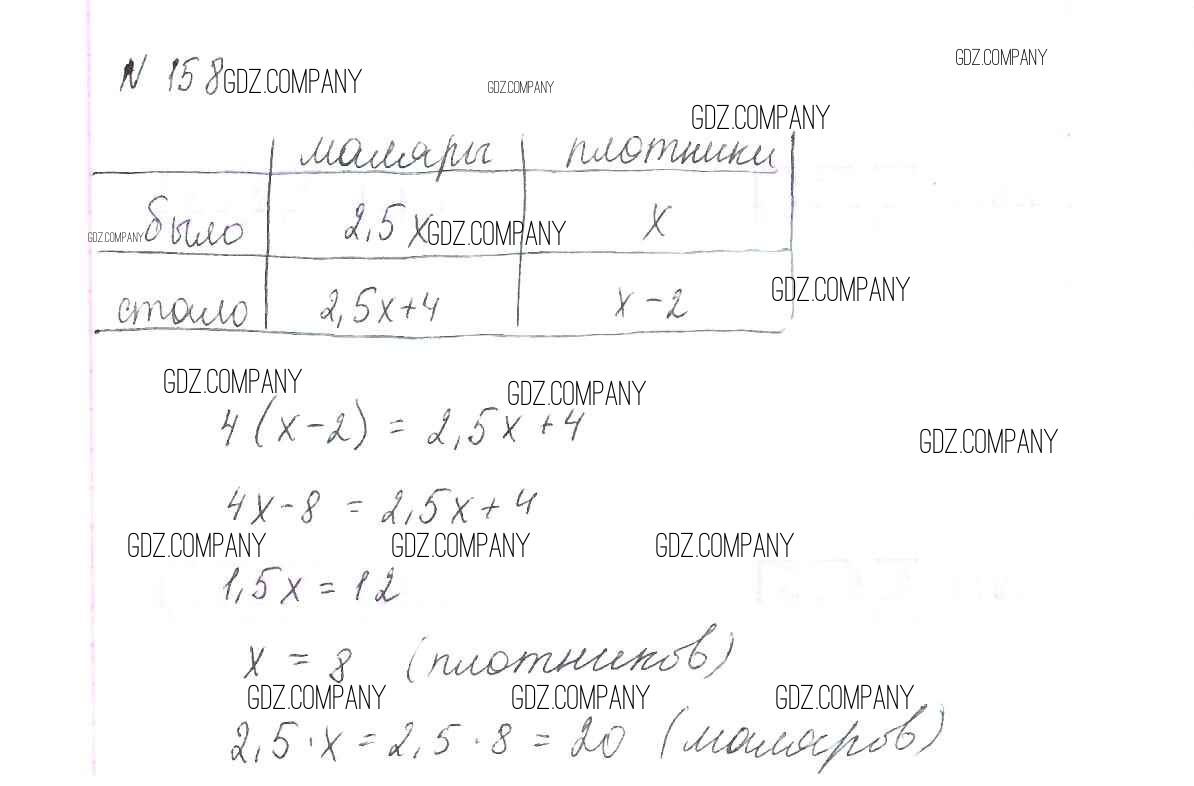 GDZ.COMPANY
N 158 GDZ.COMPANY GDZ.COMPANY
GDZ.COMPANY
маляры плотники
GDZ.COMPANY было 2,5x GDZ.COMPANY x
GDZ.COMPANY
стало 2,5x+4 x-2
GDZ.COMPANY GDZ.COMPANY
4(x-2) = 2,5x+4
GDZ.COMPANY
4x-8 = 2,5x+4
GDZ.COMPANY GDZ.COMPANY GDZ.COMPANY
1,5x = 12
x = 8 (плотников)
GDZ.COMPANY GDZ.COMPANY GDZ.COMPANY
2,5·x = 2,5·8 = 20 (маляров)